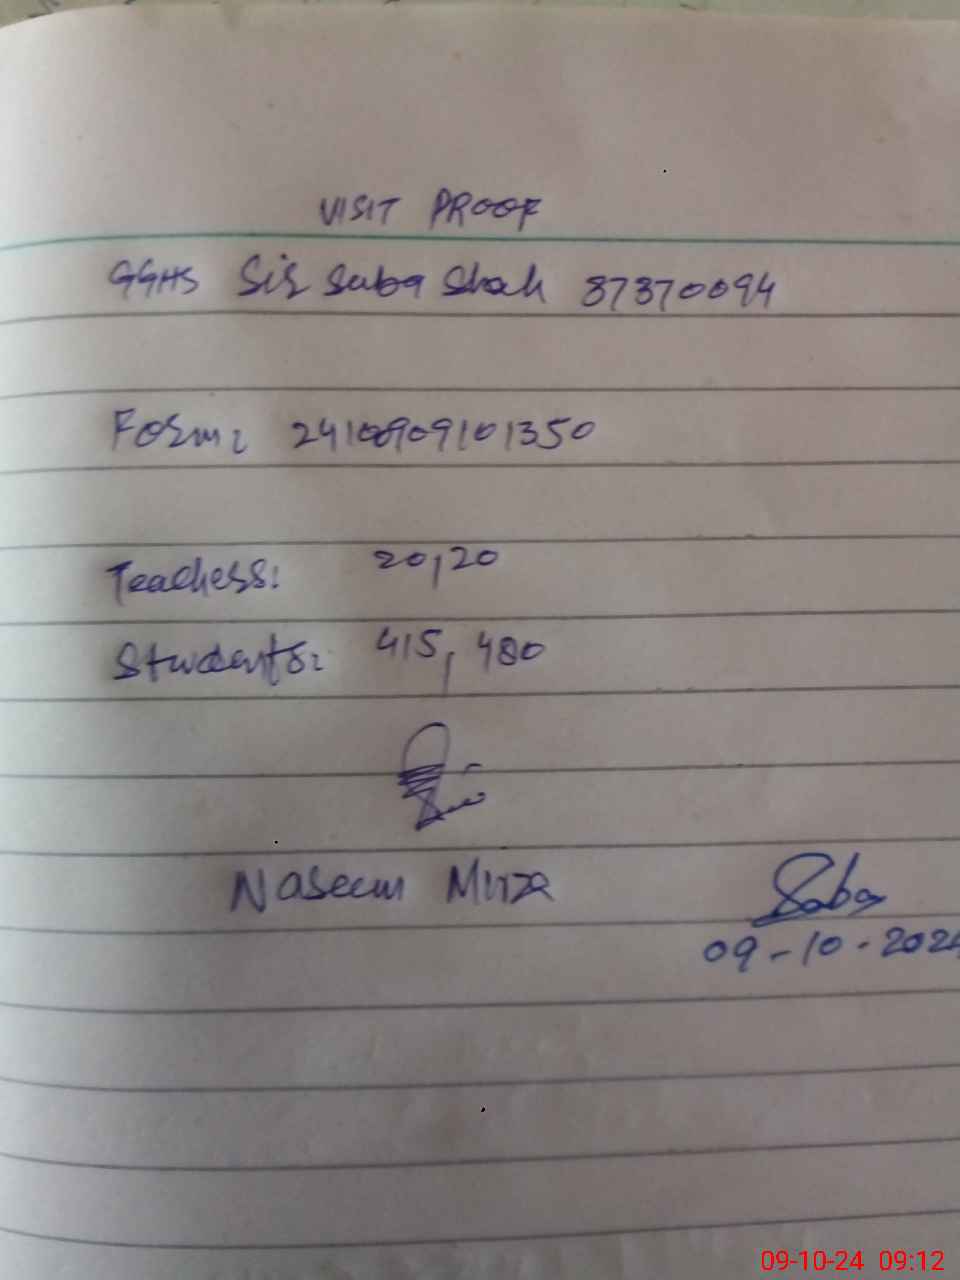 VISIT PROOF
GGHS Sir Saba Shah 87370094
Form: 2410909101350
Teachers: 20, 20
Students: 415, 480
Naseem Mirza
Saba
09-10-2024
09-10-24 09:12